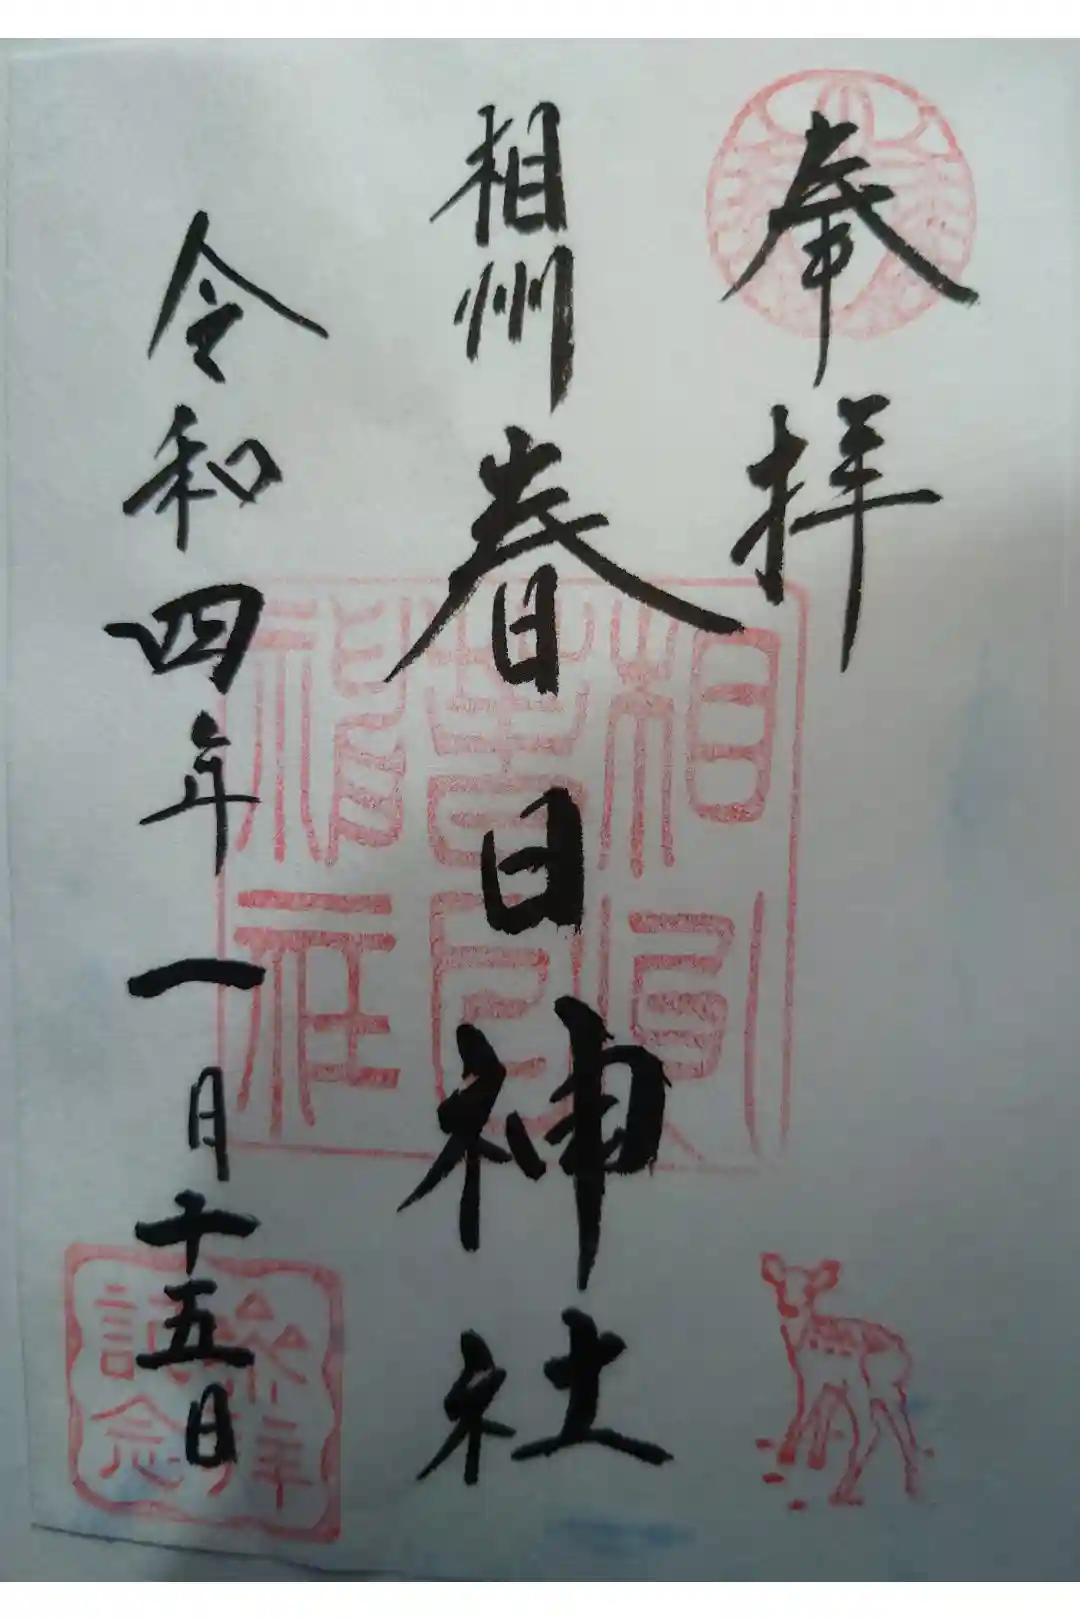 奉拝
相州春日神社
令和四年一月十五日
相州春日神社
参拝記念